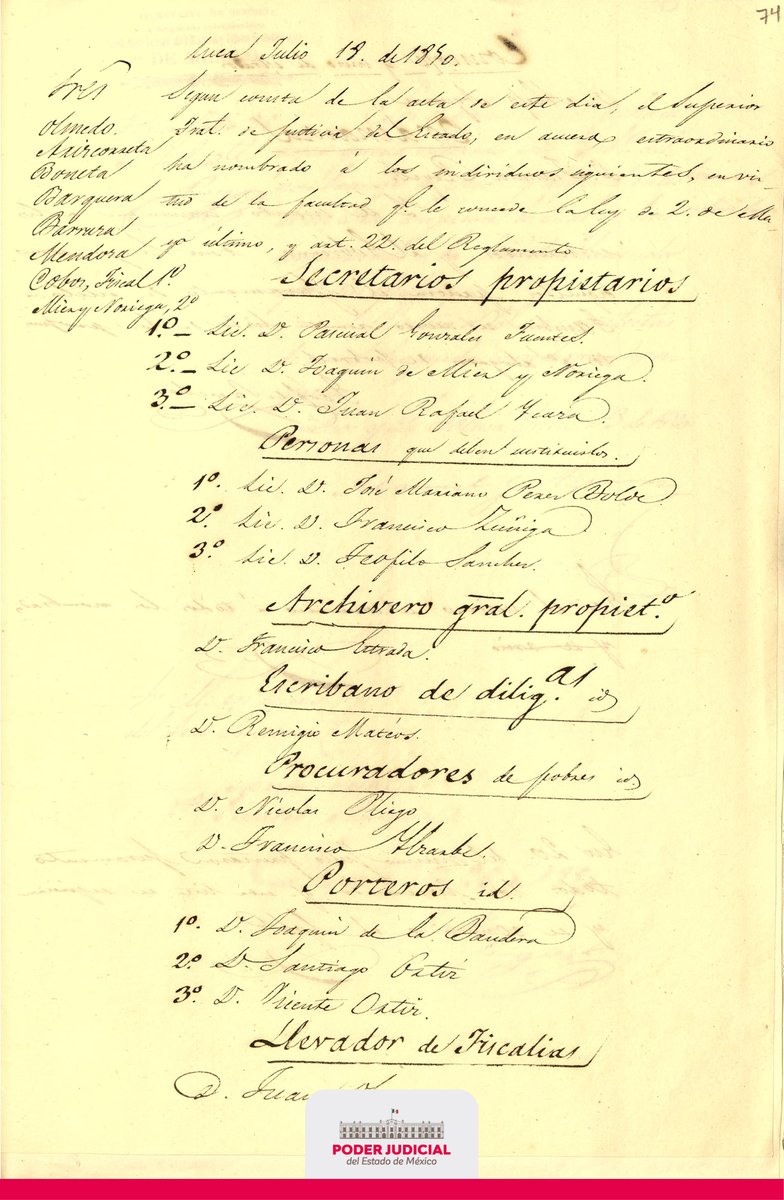 74
luca Julio 18. de 1850.
Sres
Olmedo.
Boneta
Barquera
Barrera
Mendora
Cobos, Fiscal 1º.
Mier y Noriega, 2º
Segun consta de la acta de este dia, el Superior
Trat. de Justicia del Estado, en acuerdo extraordinario
ha nombrado á los individuos siguientes, en vir-
tud de la facultad q. le concede la ley de 2. de Ma-
yo último, y art. 22. del Reglamento
Secretarios propietarios
1.º– Lic. D. Pascual Gonzales Fuentes.
2.º– Lic D. Joaquin de Mier y Noriega.
3.º– Lic. D. Juan Rafael
Personas que deben sustituirlos.
1º. Lic. D. José Mariano Perez
2.º Lic. D. Francisco Zúñiga
3.º Lic. D. Teofilo Sanchez.
Archivero gral. propiet.º
D. Francisco Estrada.
Escribano de dilig.as id
D. Remigio Matéos.
Procuradores de pobres id.
D. Nicolas Pliego
D. Francisco
Porteros id.
1º. D. Joaquin de la Bandera
2.º D. Santiago Ortiz
3.º D. Vicente Ortiz.
Llevador de Fiscalias
D. Juan
PODER JUDICIAL
del Estado de México